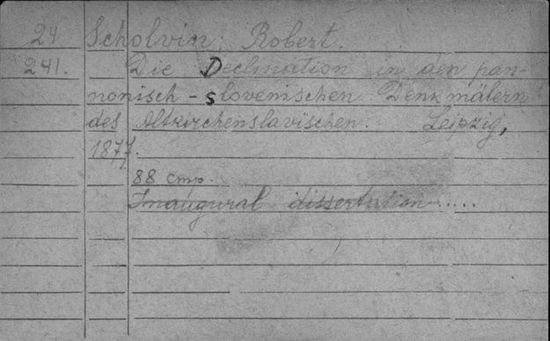 24 Scholvin, Robert.
241. Die Declination in den pan-
nonisch-slovenischen Denkmälern
des Altkirchenslavischen. Leipzig,
1877.
88 стр.
Inaugural dissertation.....